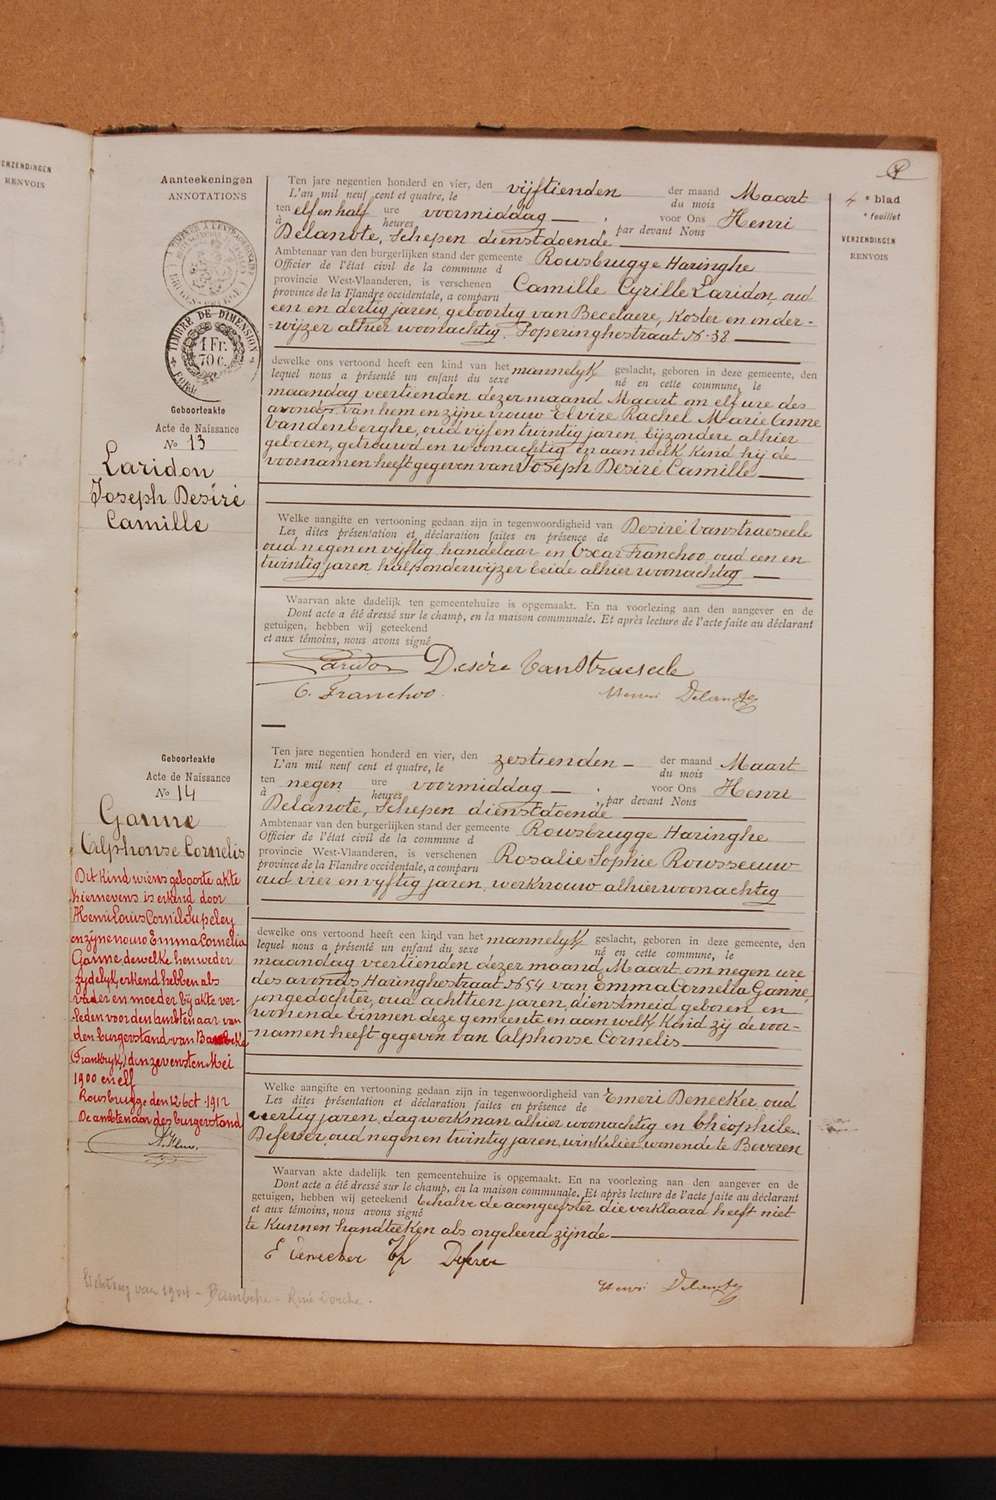 ERZENDINGEN
RENVOIS
Aanteekeningen
ANNOTATIONS
TIMBRE DE DIMENSION
1 Fr.
70 c.
4e blad
e feuillet
VERZENDINGEN
RENVOIS
Geboorteakte
Acte de Naissance
No 13
Laridon
Joseph Desiré
Camille
Ten jare negentien honderd en vier, den vijftienden der maand Maart
L'an mil neuf cent et quatre, le du mois
ten elf en half ure voormiddag voor Ons Henri
à heures par devant Nous
Delanote, Schepen dienstdoende
Ambtenaar van den burgerlijken stand der gemeente Rousbrugge Haringhe
Officier de l'état civil de la commune d
provincie West-Vlaanderen, is verschenen Camille Cyrille Laridon, oud
province de la Flandre occidentale, a comparu
een en dertig jaren, geboortig van Becelaere, Koster en onder-
wijzer alhier woonachtig. Poperinghestraat No 38
dewelke ons vertoond heeft een kind van het mannelyk geslacht, geboren in deze gemeente, den
lequel nous a présenté un enfant du sexe né en cette commune, le
maandag veertienden dezer maand Maart om elf ure des
avonds, van hem en zijne vrouw Elvire Rachel Marie Anne
Vandenberghe, oud vijf en twintig jaren, bijzondere alhier
geboren, getrouwd en woonachtig en aan welk kind hij de
voornamen heeft gegeven van Joseph Desiré Camille
Welke aangifte en vertooning gedaan zijn in tegenwoordigheid van Desiré Vanstraeseele
Les dites présentation et déclaration faites en présence de
oud negen en vijftig, handelaar en Oscar Franchoo, oud een en
twintig jaren, hulponderwijzer beide alhier woonachtig
Waarvan akte dadelijk ten gemeentehuize is opgemaakt. En na voorlezing aan den aangever en de
Dont acte a été dressé sur le champ, en la maison communale. Et après lecture de l'acte faite au déclarant
getuigen, hebben wij geteekend
et aux témoins, nous avons signé
Laridon Desiré VanStraeseele
O. Franchoo Henri Delanote
Geboorteakte
Acte de Naissance
No 14
Ganne
Alphonse Cornelis
Dit kind wiens geboorte akte
hiernevens is erkend door
Henri Louis Cornil Lupeley
en zijne vrouw Emma Cornelia
Ganne, dewelke hen weder
zydelyk erkend hebben als
vader en moeder bij akte ver-
leden voor den ambtenaar van
den burgerstand van Bambeke
(Frankrijk) den zevensten Mei
1900 en elf
Rousbrugge den 12 Oct. 1912
De ambtenaar des burgerstand
Ten jare negentien honderd en vier, den zestienden der maand Maart
L'an mil neuf cent et quatre, le du mois
ten negen ure voormiddag voor Ons Henri
à heures par devant Nous
Delanote, Schepen dienstdoende
Ambtenaar van den burgerlijken stand der gemeente Rousbrugge Haringhe
Officier de l'état civil de la commune d
provincie West-Vlaanderen, is verschenen Rosalie Sophie Rousseeuw
province de la Flandre occidentale, a comparu
oud vier en vyftig jaren, werkvrouw alhier woonachtig
dewelke ons vertoond heeft een kind van het mannelyk geslacht, geboren in deze gemeente, den
lequel nous a présenté un enfant du sexe né en cette commune, le
maandag veertienden dezer maand, Maart om negen ure
des avonds, Haringhestraat No 54 van Emma Cornelia Ganne,
jongedochter, oud achttien jaren, dienstmeid geboren en
wonende binnen deze gemeente en aan welk kind zij de voor-
namen heeft gegeven van Alphonse Cornelis
Welke aangifte en vertooning gedaan zijn in tegenwoordigheid van Emeri Denecker oud
Les dites présentation et déclaration faites en présence de
veertig jaren, dagwerksman alhier woonachtig en Théophile
Deferver, oud negen en twintig jaren, winkelier, wonende te Beveren
Waarvan akte dadelijk ten gemeentehuize is opgemaakt. En na voorlezing aan den aangever en de
Dont acte a été dressé sur le champ, en la maison communale. Et après lecture de l'acte faite au déclarant
getuigen, hebben wij geteekend behalve de aangeefster die verklaard heeft niet
et aux témoins, nous avons signé
te kunnen handteeken als ongeleerd zijnde
E Denecker
Henri Delanote
Lichting van 1924 - Bambeke -